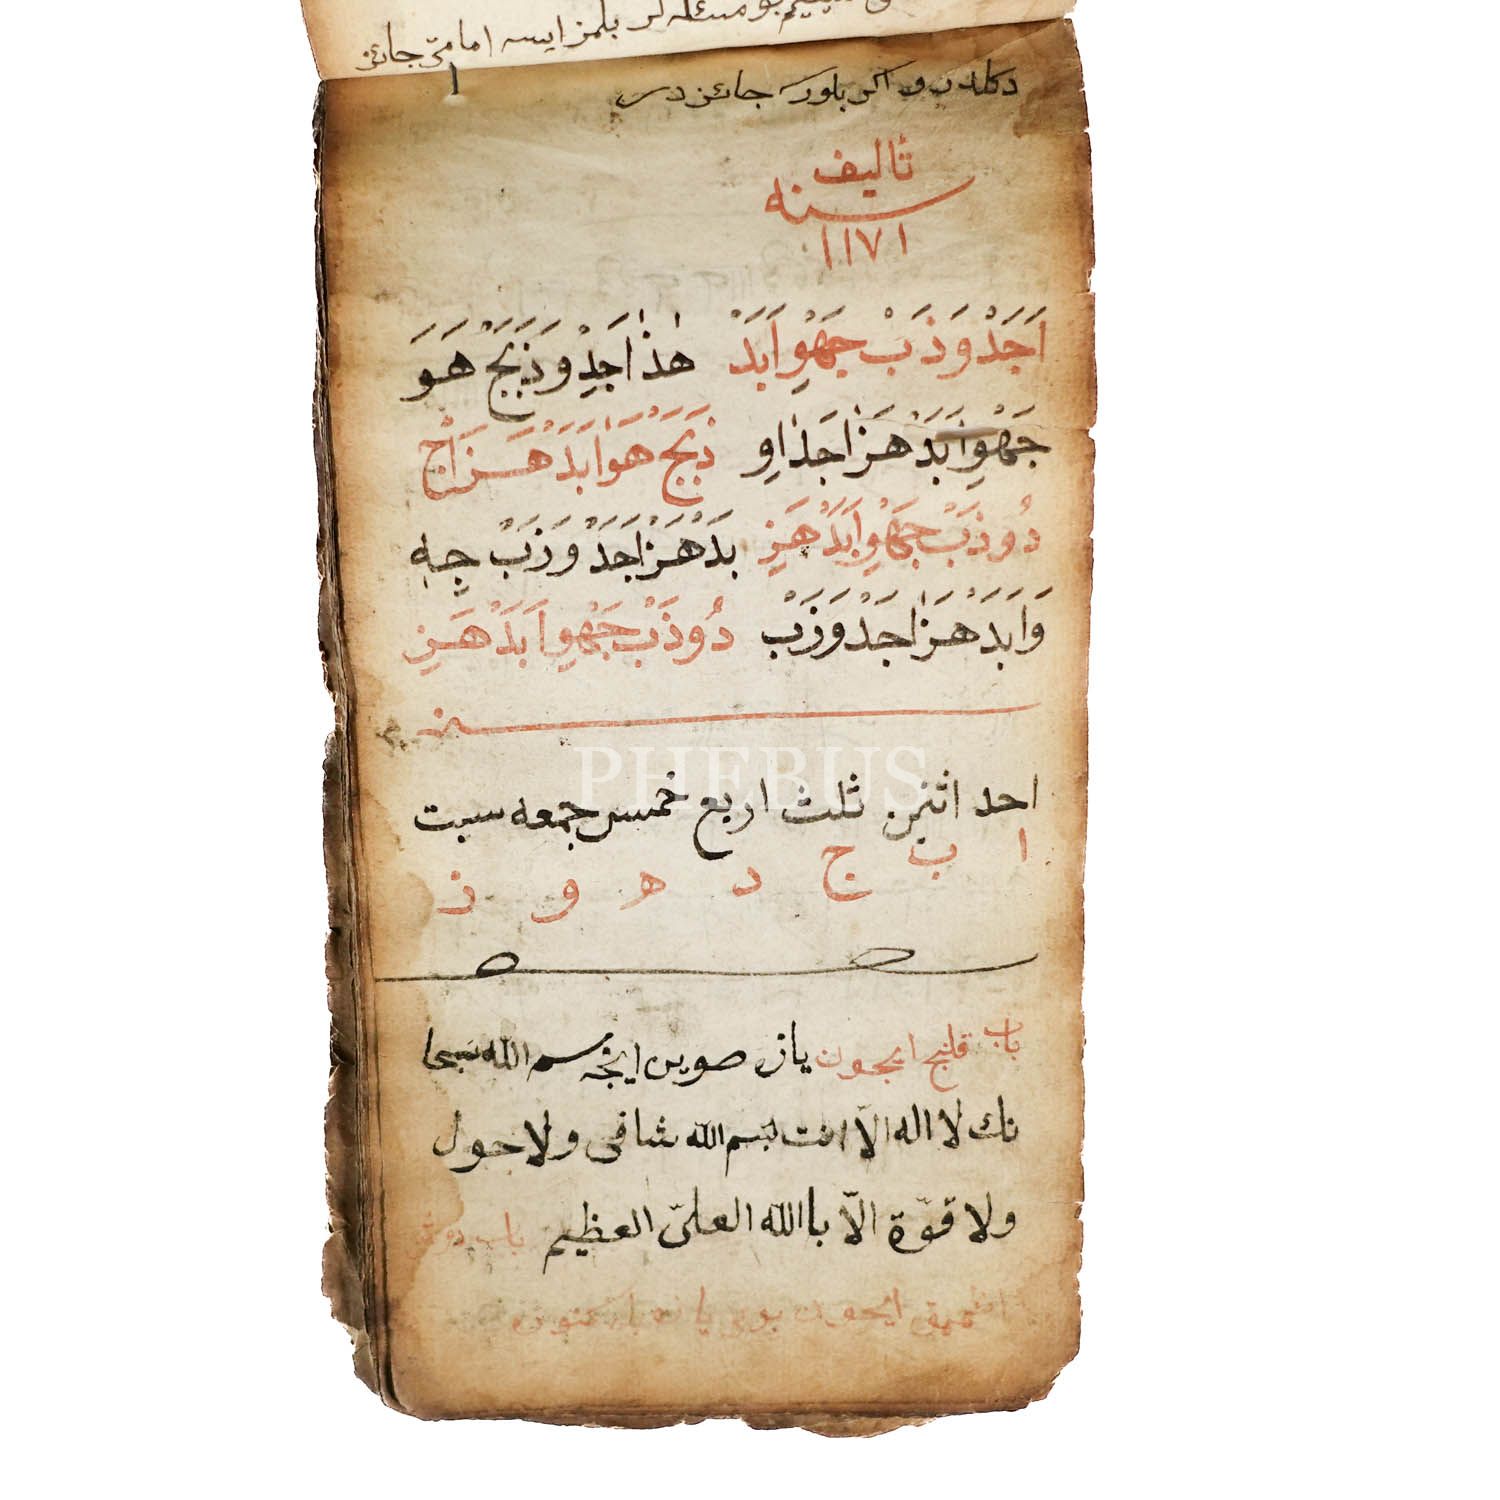 بو مسئله لر بلمز ايسه امامتى جائز
دكلدر و اكر بلورسه جائز در
تأليف
سنه
١١٧١
اَجَدْ وَ ذَبْ جَهْوِ اَبَدْ هٰذٰا جَدْ وَذَبَجْ هَوَ
جَهْوِ اَبَدْ هَزَا جَدْ اوِ ذَبَجْ هَوَ اَبَدْ هَزَ اَجْ
دُوذَبْ جَهْوِ اَبَدْ هَزِ بَدْ هَزَا جَدْ وَزَبْ جِهِ
وَاَبَدَ هَزَا جَدْ وَزَبْ دُوذَبْ جَهْوِ اَبَدْ هَزِ
PHEBUS
احد اثنين ثلث اربع خمس جمعه سبت
ا ب ج د ه و ز
باب قلنج ايچون ياز صوين ايچه بسم الله سبحا
نك لا اله الّا انت بسم الله شافى ولا حول
ولا قوّة الّا باالله العلىّ العظيم باب
ايچون بونى يازه